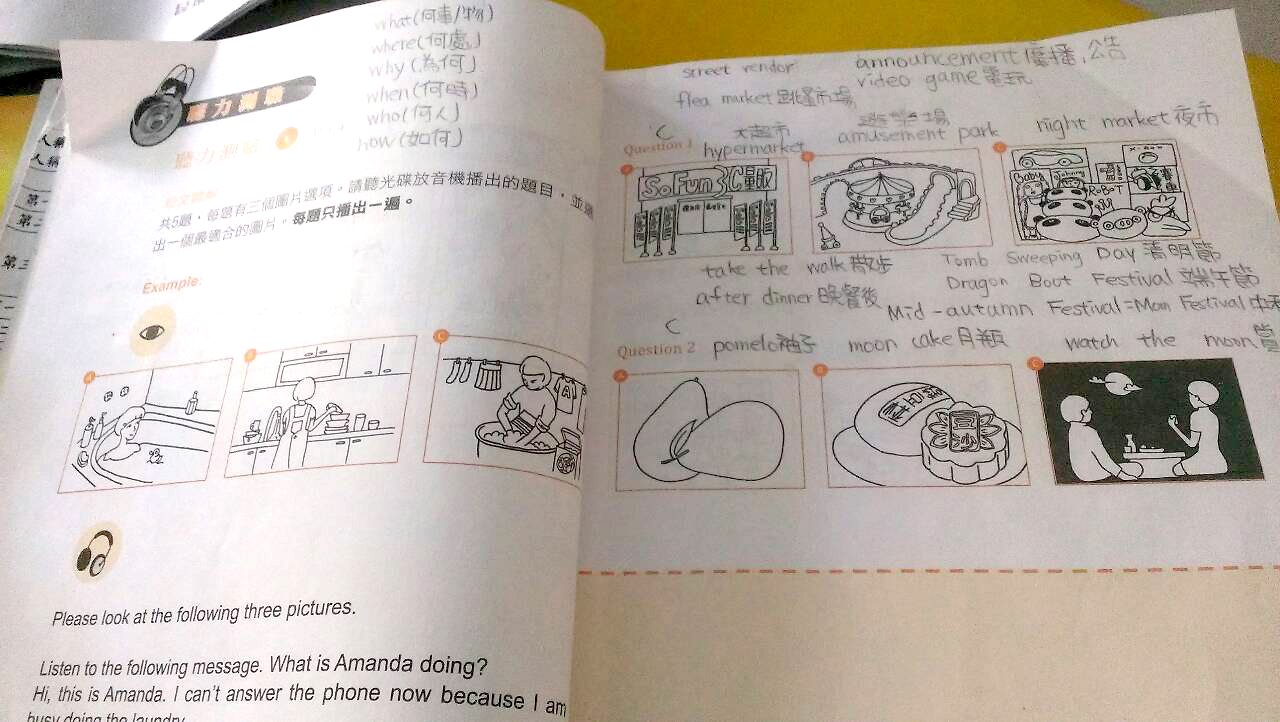 what(何事/物)
where(何處)
why(為何)
when(何時)
who(何人)
how(如何)
聽力測驗
聽力測驗
共5題，每題有三個圖片選項。請聽光碟放音機播出的題目，並選
出一個最適合的圖片。每題只播出一遍。
Example:
A
B
C
A
Please look at the following three pictures.
Listen to the following message. What is Amanda doing?
Hi, this is Amanda. I can't answer the phone now because I am
busy doing the laundry.
人稱
人稱
第一
第二
第三
street vendor
announcement 廣播,公告
video game 電玩
flea market 跳蚤市場
C
Question 1
大超市
hypermarket
遊樂場
amusement park
night market 夜市
A
SoFun 3C量販
B
C
Baby
Johnny
R-BOT
X-BOX
take the walk 散步
after dinner 晚餐後
Tomb Sweeping Day 清明節
Dragon Boat Festival 端午節
Mid-autumn Festival=Moon Festival 中秋
C
Question 2
pomelo 柚子
moon cake 月餅
watch the moon 賞
A
B
豆沙
C